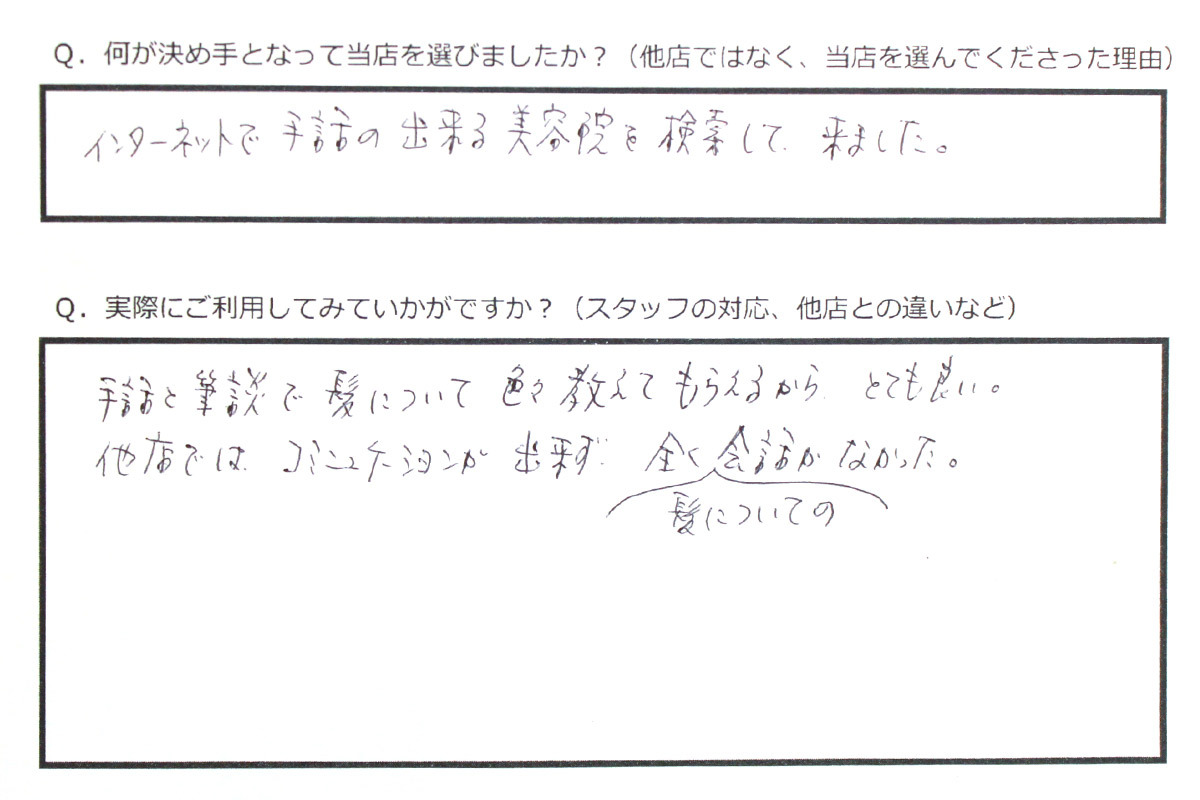 Q．何が決め手となって当店を選びましたか？（他店ではなく、当店を選んでくださった理由）
インターネットで 手話の 出来る 美容院を 検索して、来ました。
Q．実際にご利用してみていかがですか？（スタッフの対応、他店との違いなど）
手話と筆談で 髪について 色々 教えて もらえるから、とても良い。
他店では、コミュニケーションが 出来ず、全く会話がなかった。
髪についての